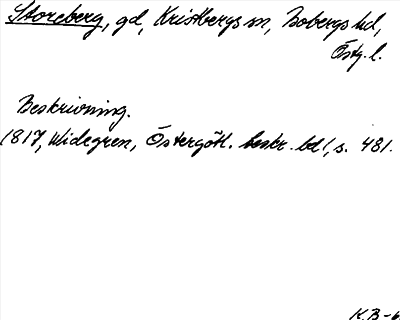 Storeberg, gd, Kristbergs sn, Bobergs hd,
Östg. l.
Beskrivning.
1817, Widegren, Östergötl. beskr. bd 1, s. 481.
K.B-6